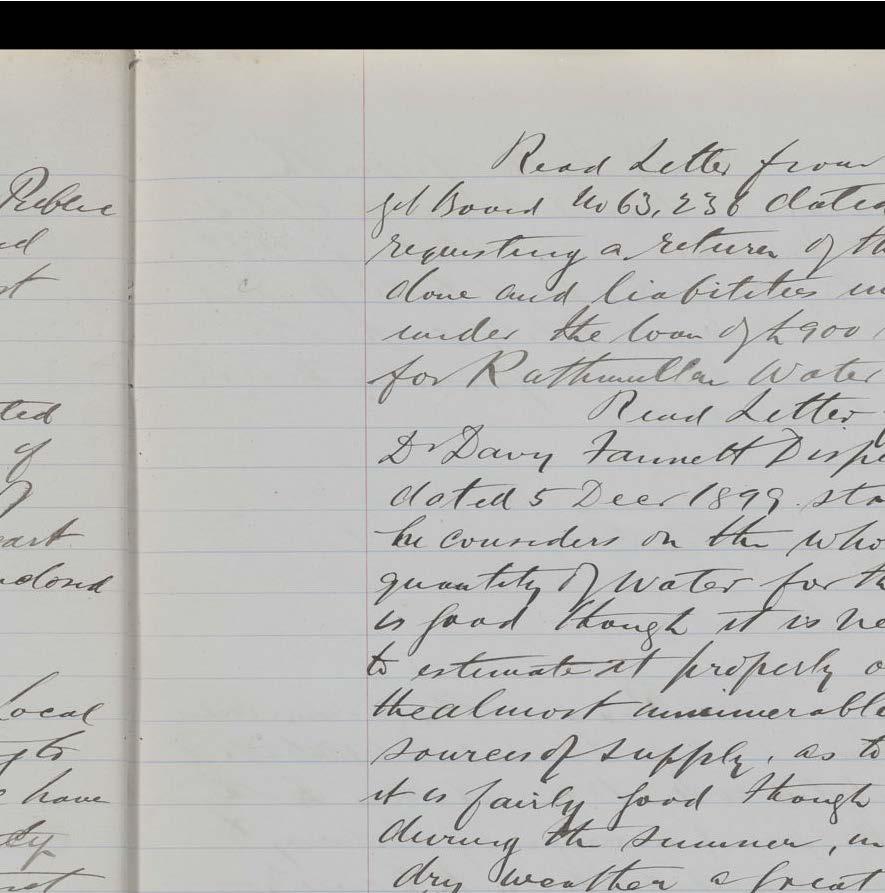 Public
ted
of
Local
have
Read Letter from
Board No 63,236 dated
requesting a return of th
done and liabilities in
under the loan of £900
for Rathmullan Water
Read Letter
Dr Davy Fannett Dispe
dated 5 Decr 1899 sta
he considers on the who
quantity of water for th
is good though it is ne
to estimate it properly o
the almost innumerable
sources of supply, as to
it is fairly good though
during the summer, in
dry weather a great